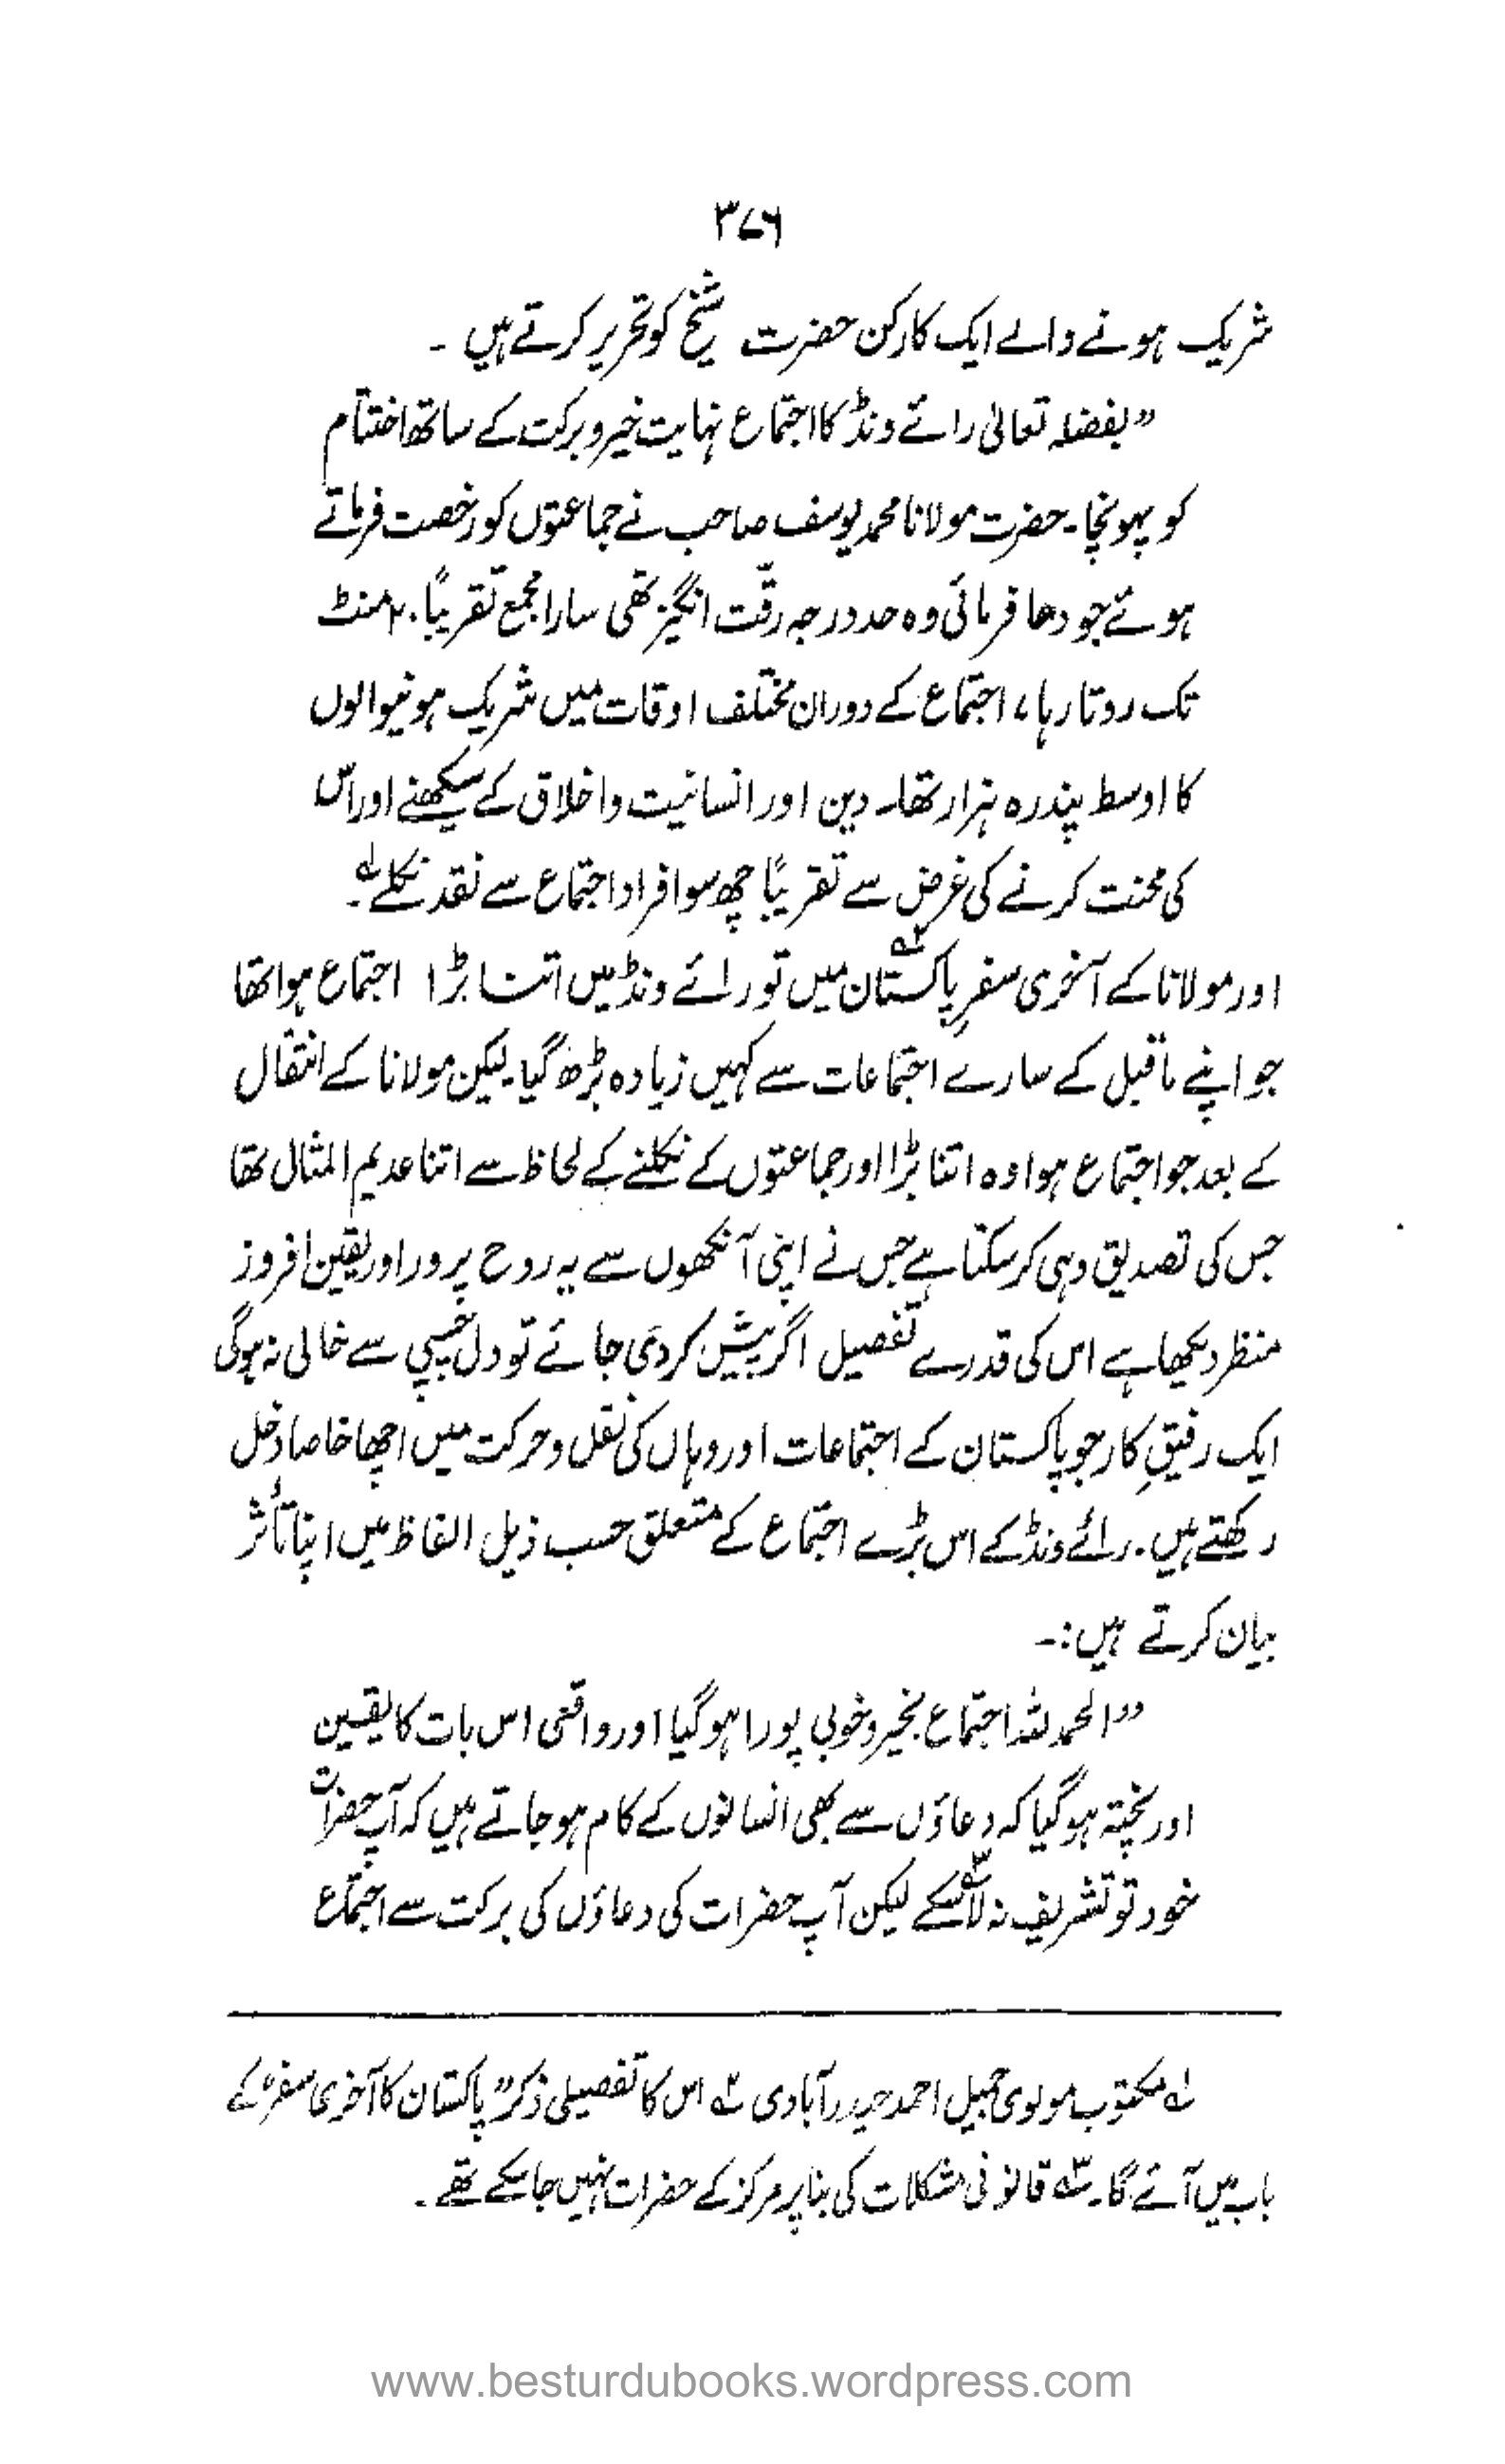 ۳۷۶
شریک ہونے والے ایک کارکن حضرت شیخ کو تحریر کرتے ہیں ۔
”بفضلہ تعالیٰ رائے ونڈ کا اجتماع نہایت خیر و برکت کے ساتھ اختتام
کو پہونچا۔ حضرت مولانا محمد یوسف صاحب نے جماعتوں کو رخصت فرماتے
ہوئے جو دعا فرمائی وہ حد درجہ رقّت انگیز تھی سارا مجمع تقریباً ۲۰ منٹ
تک روتا رہا، اجتماع کے دوران مختلف اوقات میں شریک ہونیوالوں
کا اوسط پندرہ ہزار تھا۔ دین اور انسانیت و اخلاق کے سیکھنے اور اس
کی محنت کرنے کی غرض سے تقریباً چھ سو افراد اجتماع سے نقد نکلے ۱؎۔
اور مولانا کے آخری سفرِ پاکستان ۲؎ میں تو رائے ونڈ میں اتنا بڑا اجتماع ہوا تھا
جو اپنے ماقبل کے سارے اجتماعات سے کہیں زیادہ بڑھ گیا۔ لیکن مولانا کے انتقال
کے بعد جو اجتماع ہوا وہ اتنا بڑا اور جماعتوں کے نکلنے کے لحاظ سے اتنا عدیم المثال تھا
جس کی تصدیق وہی کر سکتا ہے جس نے اپنی آنکھوں سے یہ روح پرور اور یقین افروز
منظر دیکھا ہے اس کی قدرے تفصیل اگر پیش کر دی جائے تو دل چسپی سے خالی نہ ہوگی
ایک رفیقِ کار جو پاکستان کے اجتماعات اور وہاں کی نقل و حرکت میں اچھا خاصا دخل
رکھتے ہیں ۔ رائے ونڈ کے اس بڑے اجتماع کے متعلق حسب ذیل الفاظ میں اپنا تأثر
بیان کرتے ہیں :۔
”الحمد للہ اجتماع بخیر و خوبی پورا ہو گیا اور واقعی اس بات کا یقین
اور پختہ ہو گیا کہ دعاؤں سے بھی انسانوں کے کام ہو جاتے ہیں کہ آپ حضرات
خود تو تشریف نہ لا سکے ۳؎ لیکن آپ حضرات کی دعاؤں کی برکت سے اجتماع
۱؎ مکتوب مولوی جمیل احمد حیدرآبادی ۲؎ اس کا تفصیلی ذکر ”پاکستان کا آخری سفر“ کے
باب میں آئے گا۔ ۳؎ قانونی مشکلات کی بنا پر مرکز کے حضرات نہیں جا سکے تھے ۔
www.besturdubooks.wordpress.com